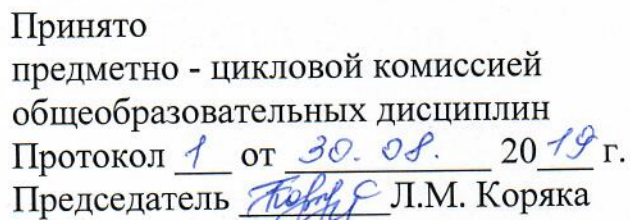 Принято
предметно - цикловой комиссией
общеобразовательных дисциплин
Протокол 1 от 30. 08. 2019 г.
Председатель Л.М. Коряка